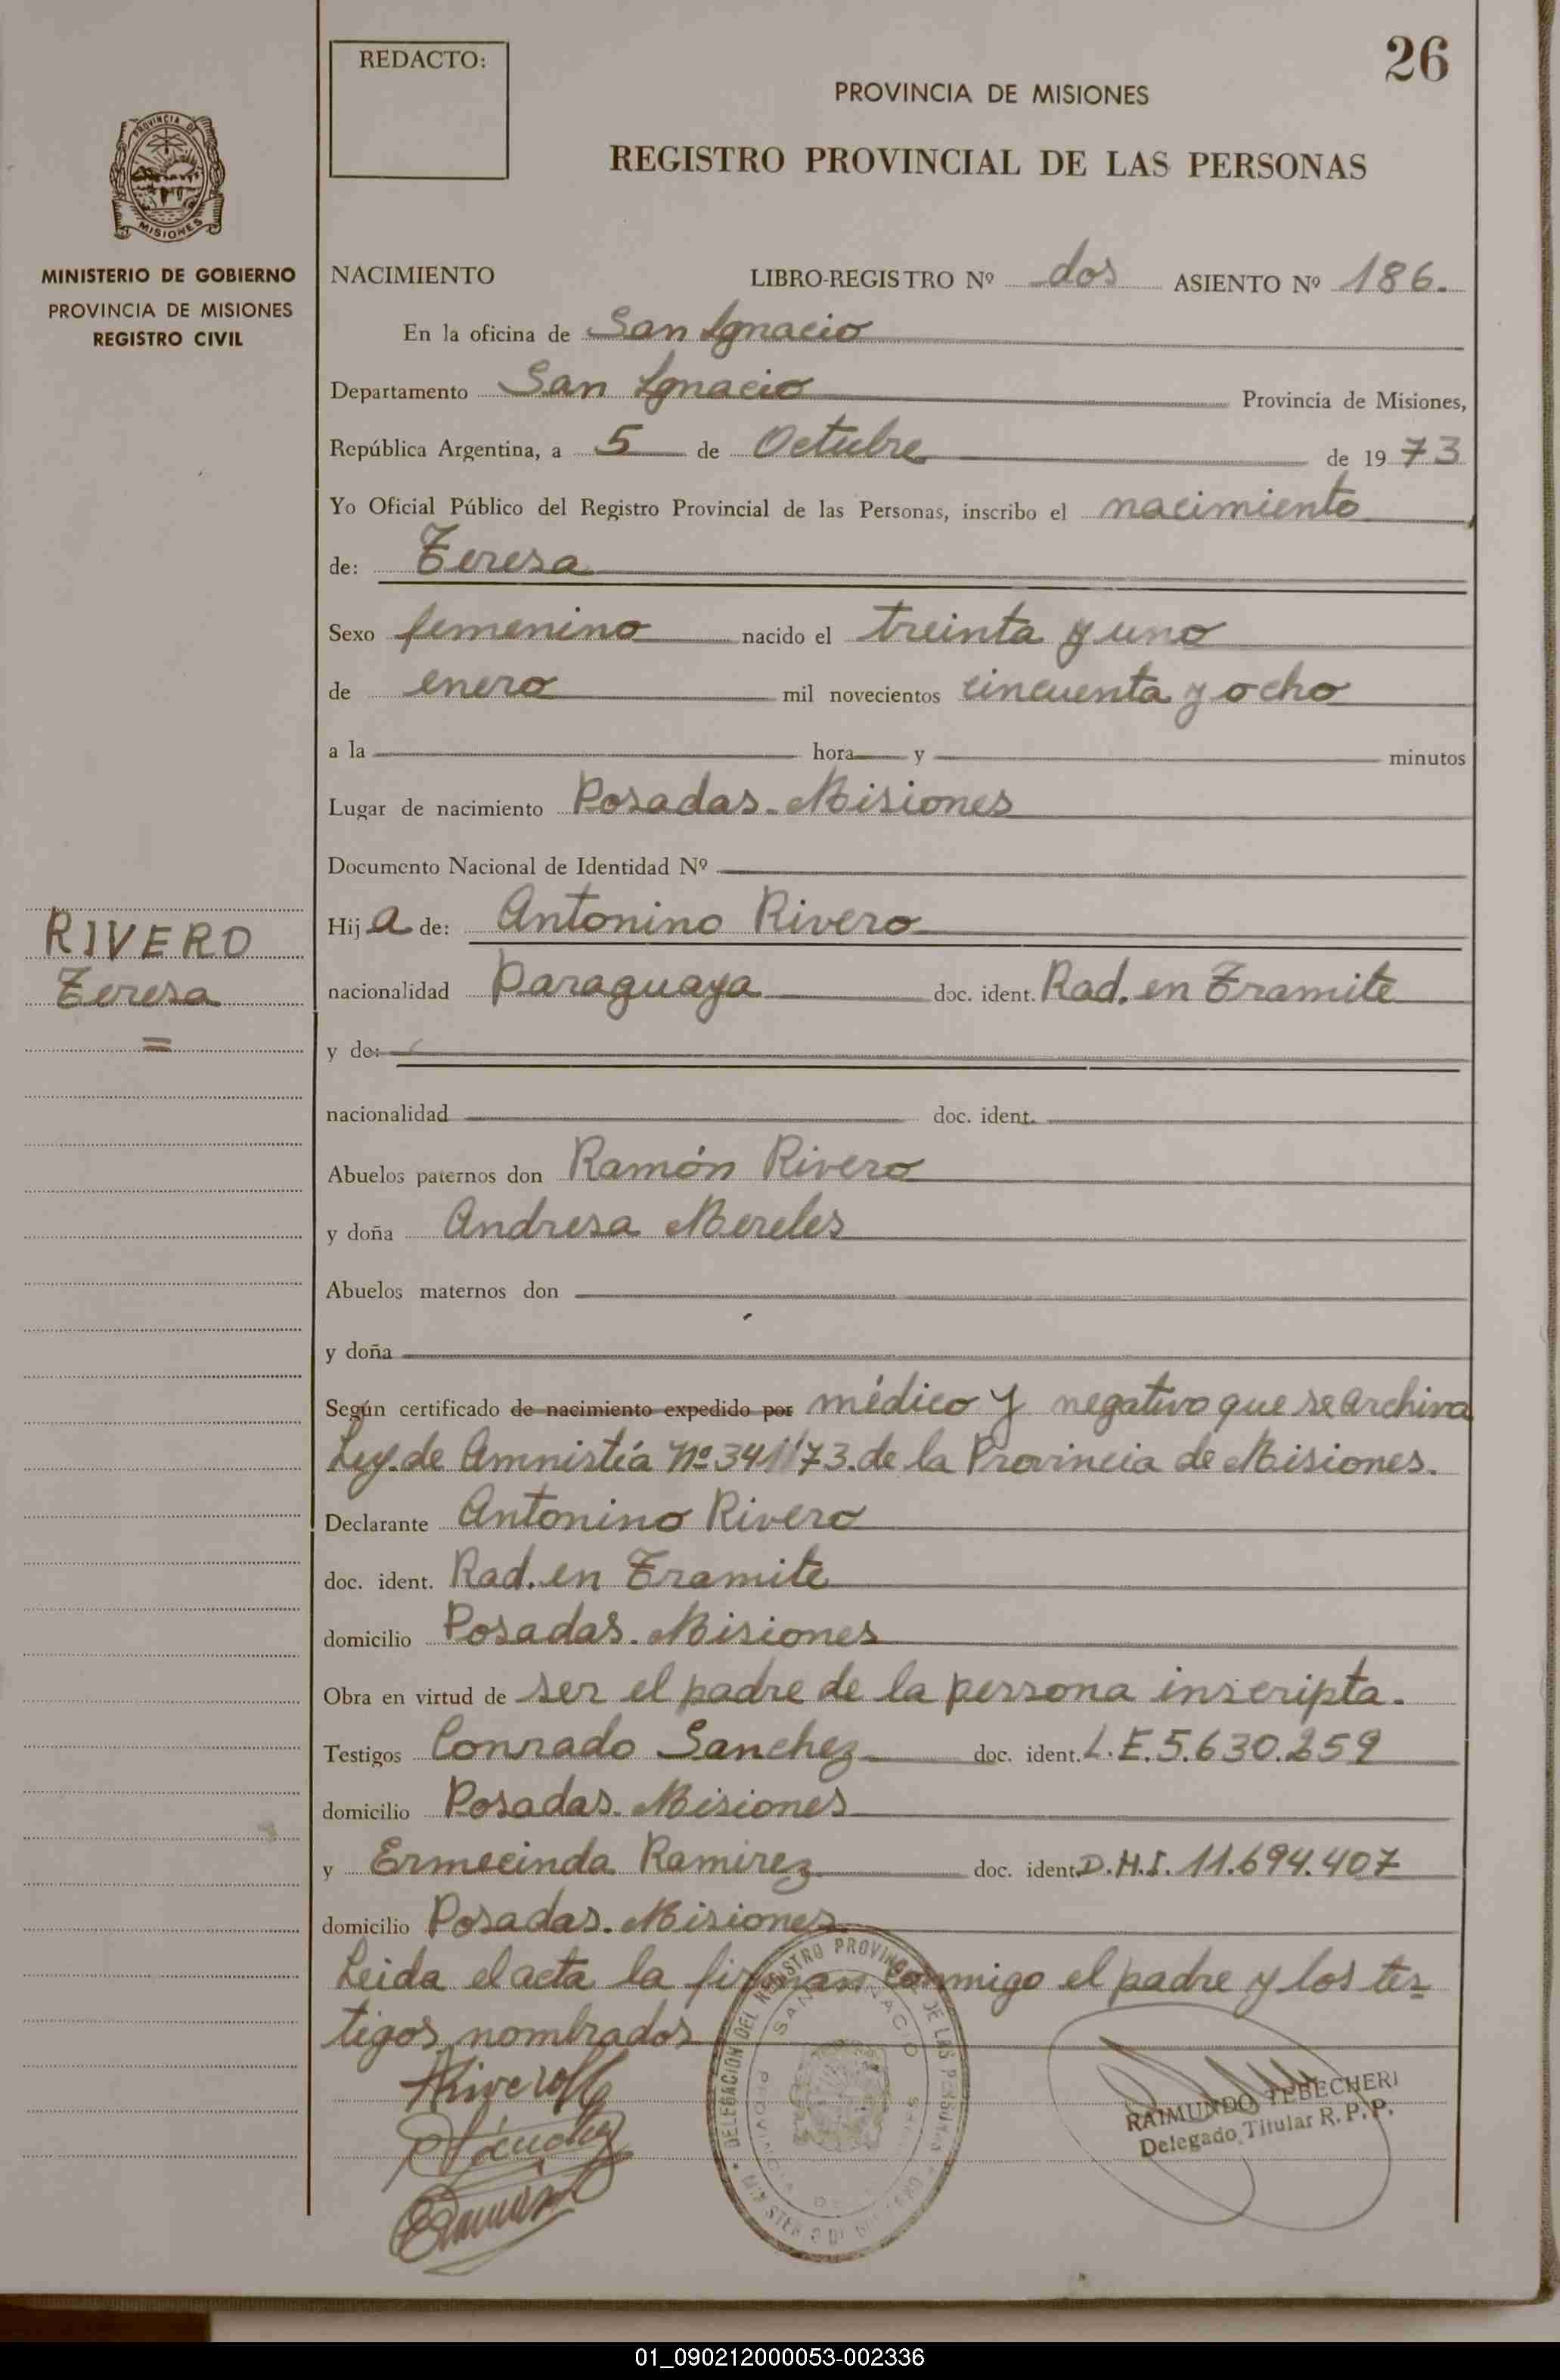 REDACTO:
26
PROVINCIA DE MISIONES
REGISTRO PROVINCIAL DE LAS PERSONAS
PROVINCIA DE
MISIONES
MINISTERIO DE GOBIERNO
PROVINCIA DE MISIONES
REGISTRO CIVIL
NACIMIENTO LIBRO-REGISTRO Nº dos ASIENTO Nº 186.
En la oficina de San Ignacio
Departamento San Ignacio Provincia de Misiones,
República Argentina, a 5 de Octubre de 19 73
Yo Oficial Público del Registro Provincial de las Personas, inscribo el nacimiento
de: Teresa
Sexo femenino nacido el treinta y uno
de enero mil novecientos cincuenta y ocho
a la hora y minutos
Lugar de nacimiento Posadas. Misiones
Documento Nacional de Identidad Nº
RIVERO
Teresa
=
Hij a de: Antonino Rivero
nacionalidad Paraguaya doc. ident. Rad. en Tramite
y de:
nacionalidad doc. ident.
Abuelos paternos don Ramón Rivero
y doña Andresa Mereles
Abuelos maternos don
y doña
Según certificado de nacimiento expedido por médico y negativo que se archiva
Ley de Amnistía Nº 341/73. de la Provincia de Misiones.
Declarante Antonino Rivero
doc. ident. Rad. en Tramite
domicilio Posadas. Misiones
Obra en virtud de ser el padre de la persona inscripta.
Testigos Conrado Sanchez doc. ident. L.E. 5.630.259
domicilio Posadas. Misiones
y Ermecinda Ramirez doc. ident. D.N.I. 11.694.407
domicilio Posadas. Misiones
Leida el acta la firman conmigo el padre y los tes-
tigos nombrados
DELEGACION DEL REGISTRO PROVINCIAL DE LAS PERSONAS
SAN IGNACIO
RAIMUNDO TEBECHERI
Delegado Titular R. P. P.
01_090212000053-002336